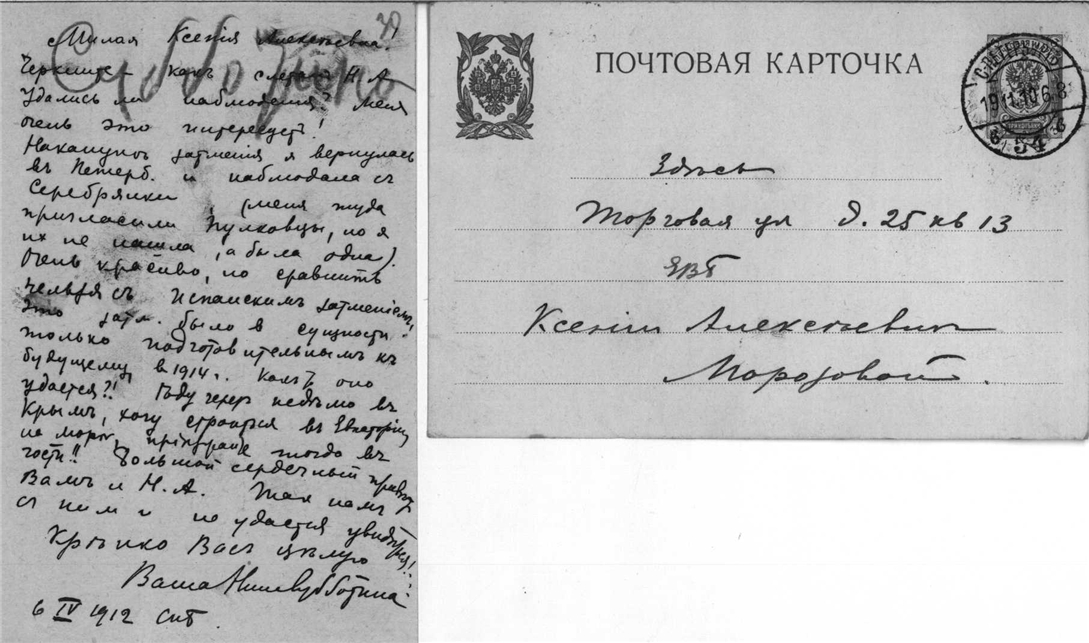 Милая Ксенія Алексѣевна.
Черкните какъ съѣздилъ Н. А.
Удались ли наблюденія? Меня
очень это интересуетъ!
Наканунѣ затменія я вернулась
въ Петерб. и наблюдала съ
Серебрянки (меня туда
пригласили Пулковцы, но я
их не нашла, а была одна).
Очень красиво, но сравнить
нельзя съ Испанскимъ затменіемъ,
это затм. было в сущности
только подготовительнымъ къ
будущему в 1914 г. Какъ оно
удастся?! Ѣду черезъ недѣлю въ
Крымъ, хочу строиться въ Евпаторіи
на морѣ, тогда въ
гости!! Большой сердечный привѣтъ
Вамъ и Н. А. Так намъ
съ ним и не удастся увидѣться!
Крѣпко Васъ цѣлую
Ваша Нина Субботина
6 IV 1912 СПБ.
ПОЧТОВАЯ КАРТОЧКА
С.ПЕТЕРБУРГЪ
54
Здѣсь
Торговая ул д. 25 кв 13
ЕВБ
Ксеніи Алексѣевнѣ
Морозовой.